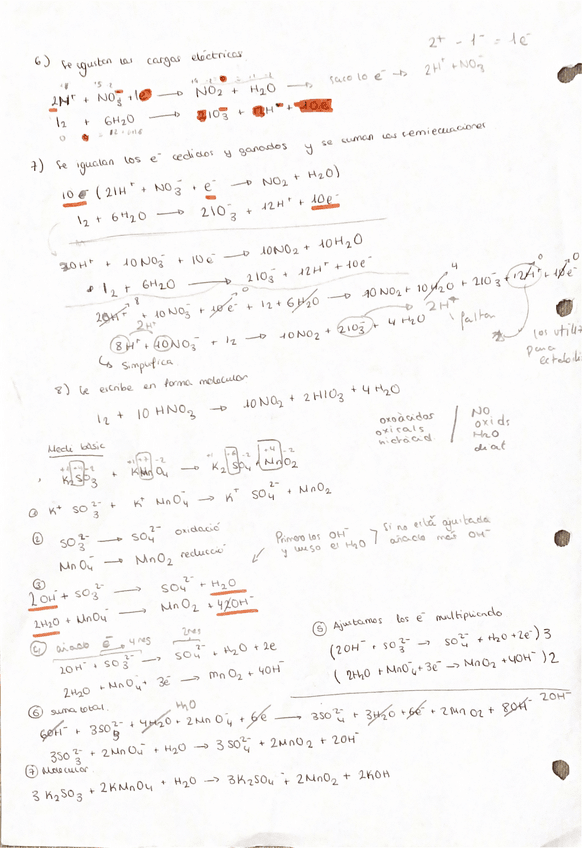 2⁺ - 1⁻ = 1e⁻
6) Se igualan las cargas eléctricas
2H⁺ + NO₃⁻ + 1e⁻ → NO₂ + H₂O → saco lo e⁻ → 2H⁺ + NO₃⁻
I₂ + 6H₂O → 2IO₃⁻ + 12H⁺ + 10e⁻
7) Se igualan los e⁻ cedidos y ganados y se suman las semiecuaciones
10 e⁻ (2H⁺ + NO₃⁻ + e⁻ → NO₂ + H₂O)
I₂ + 6H₂O → 2IO₃⁻ + 12H⁺ + 10e⁻
20H⁺ + 10NO₃⁻ + 10e⁻ → 10NO₂ + 10H₂O
I₂ + 6H₂O → 2IO₃⁻ + 12H⁺ + 10e⁻
20H⁺ 8 + 10NO₃⁻ + 10e⁻ 0 + I₂ + 6H₂O → 10NO₂ + 10H₂O 4 + 2IO₃⁻ + 12H⁺ 0 + 10e⁻ 0
2H⁺ 2H⁺ faltan
8H⁺ + 10NO₃⁻ + I₂ → 10NO₂ + 2IO₃⁻ + 4H₂O
los utiliz para
↳ Simplifica
8) Se escribe en forma molecular
I₂ + 10HNO₃ → 10NO₂ + 2HIO₃ + 4H₂O
oxoàcidos / NO
oxisals oxids
hidràcid H₂O
Medi bàsic
K₂SO₃ + KMnO₄ → K₂SO₄ + MnO₂
① K⁺ SO₃²⁻ + K⁺ MnO₄⁻ → K⁺ SO₄²⁻ + MnO₂
② SO₃²⁻ → SO₄²⁻ oxidació
MnO₄⁻ → MnO₂ reducció
Primero los OH⁻ y luego el H₂O > Si no está ajustada añado más OH⁻
③
2OH⁻ + SO₃²⁻ → SO₄²⁻ + H₂O
2H₂O + MnO₄⁻ → MnO₂ + 4OH⁻
④ añado e⁻
2OH⁻ + SO₃²⁻ → SO₄²⁻ + H₂O + 2e
2H₂O + MnO₄⁻ + 3e⁻ → MnO₂ + 4OH⁻
⑤ Ajustamos los e⁻ multiplicando
(2OH⁻ + SO₃²⁻ → SO₄²⁻ + H₂O + 2e⁻) 3
(2H₂O + MnO₄⁻ + 3e⁻ → MnO₂ + 4OH⁻) 2
⑥ suma total H₂O
6OH⁻ + 3SO₃²⁻ + 4H₂O + 2MnO₄⁻ + 6e⁻ → 3SO₄²⁻ + 3H₂O + 6e⁻ + 2MnO₂ + 8OH⁻ 2OH⁻
3SO₃²⁻ + 2MnO₄⁻ + H₂O → 3SO₄²⁻ + 2MnO₂ + 2OH⁻
⑦ Molecular
3K₂SO₃ + 2KMnO₄ + H₂O → 3K₂SO₄ + 2MnO₂ + 2KOH